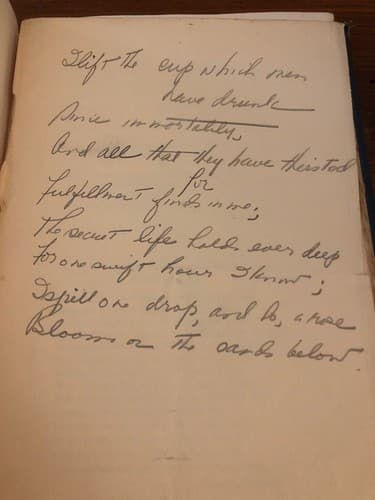 I lift the cup which men
have drunk
Since immortality,
And all that they have thirsted
for
Fulfillment finds in me;
The secret life holds ever deep
For one swift hour I know;
I spill one drop, and lo, a rose
Blooms on the sands below.